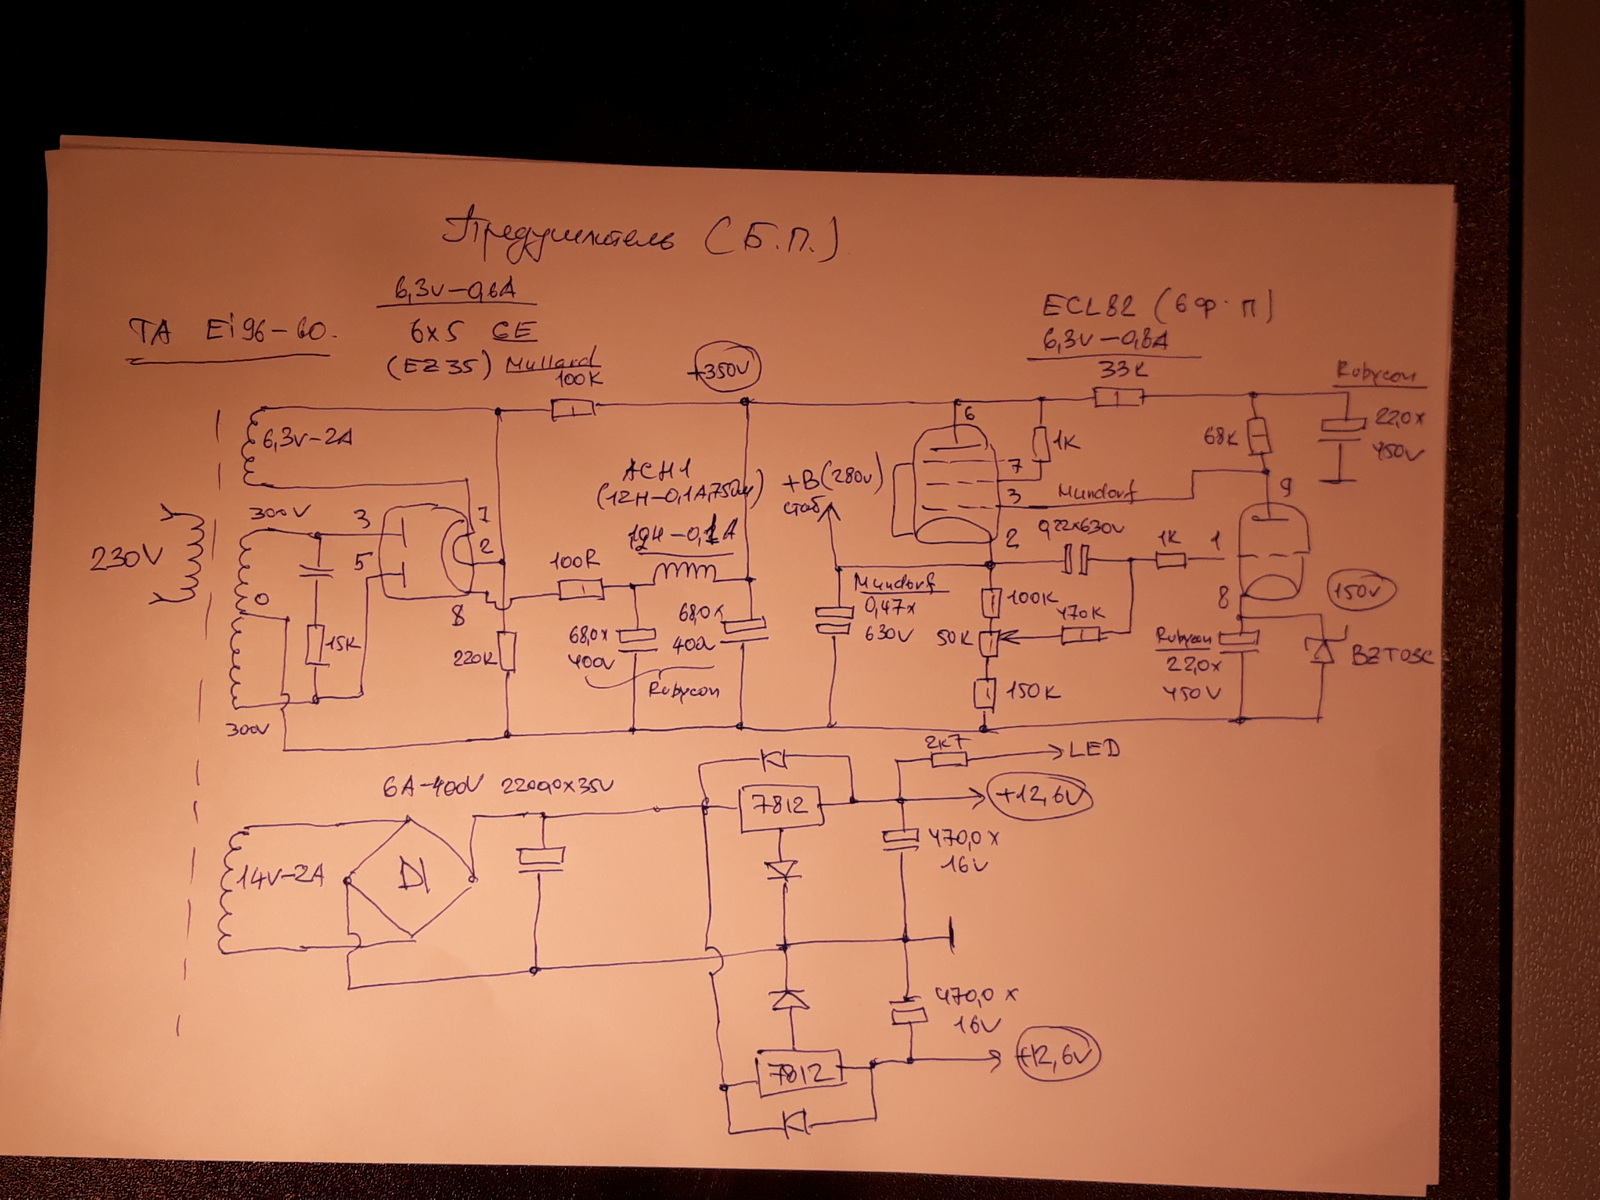 Предусилитель (Б.П.)
6,3V-0,6A
6x5 GE
(EZ35) Mullard
TA Ei96-60.
ECL82 (6ф.П)
6,3V-0,8A
33K
Rubycon
22,0x
450V
100K
+350V
6,3V-2A
ACH1
(12H-0,1A,75Ом)
12H-0,1A
+B(280V)
стаб
6
1K
7
3
Mundorf
68K
9
230V
300V
3
5
7
2
8
0
15K
300V
100R
220K
68,0x
400V
68,0x
400
Rubycon
Mundorf
0,47x
630V
2
0,22x630V
1K
1
100K
50K
470K
150K
8
150V
Rubycon
22,0x
450V
BZT03C
6A-400V
2200,0x35V
7812
2K7
LED
+12,6V
14V-2A
D1
470,0x
16V
470,0x
16V
7812
+12,6V